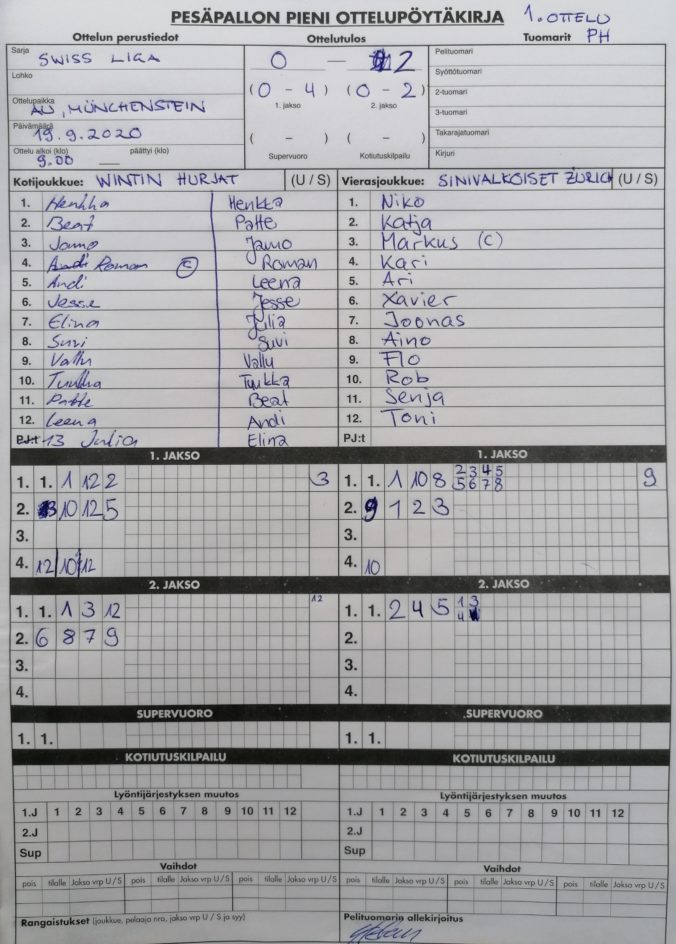 PESÄPALLON PIENI OTTELUPÖYTÄKIRJA 1. OTTELU
Ottelun perustiedot Ottelutulos Tuomarit PH
Sarja SWISS LIGA 0 — 2 Pelituomari
Lohko Syöttötuomari
(0 - 4) (0 - 2) 2-tuomari
Ottelupaikka AU, MÜNCHENSTEIN 1. jakso 2. jakso 3-tuomari
Päivämäärä 19.9.2020 ( - ) ( - ) Takarajatuomari
Ottelu alkoi (klo) päättyi (klo) Supervuoro Kotiutuskilpailu Kirjuri
9.00 —
Kotijoukkue: WINTIN HURJAT (U / S) Vierasjoukkue: SINIVALKOISET ZÜRICH (U / S)
1. Henkka Henkka 1. Niko
2. Beat Patte 2. Katja
3. Jamo Jamo 3. Markus (C)
4. Roman (C) Roman 4. Kari
5. Andi Leena 5. Ari
6. Jesse Jesse 6. Xavier
7. Elina Julia 7. Joonas
8. Suvi Suvi 8. Aino
9. Vallu Vallu 9. Flo
10. Tuukka Tuukka 10. Rob
11. Patte Beat 11. Senja
12. Leena Andi 12. Toni
PJ:t 13 Julia Elina PJ:t
1. JAKSO 1. JAKSO
1. 1. 1 12 2 3 1. 1. 1 10 8 2 3 4 5 9
5 6 7 8
2. 10 12 5 2. 9 1 2 3
3. 3.
4. 12 10 12 4. 10
2. JAKSO 2. JAKSO
1. 1. 1 3 12 12 1. 1. 2 4 5 1 3
4
2. 6 8 7 9 2.
3. 3.
4. 4.
SUPERVUORO SUPERVUORO
1. 1. 1. 1.
KOTIUTUSKILPAILU KOTIUTUSKILPAILU
Lyöntijärjestyksen muutos Lyöntijärjestyksen muutos
1.J 1 2 3 4 5 6 7 8 9 10 11 12 1.J 1 2 3 4 5 6 7 8 9 10 11 12
2.J 2.J
Sup Sup
Vaihdot Vaihdot
pois tilalle Jakso vrp U / S pois tilalle Jakso vrp U / S pois tilalle Jakso vrp U / S pois tilalle Jakso vrp U / S
Rangaistukset (joukkue, pelaaja nro, jakso vrp U / S ja syy) Pelituomarin allekirjoitus